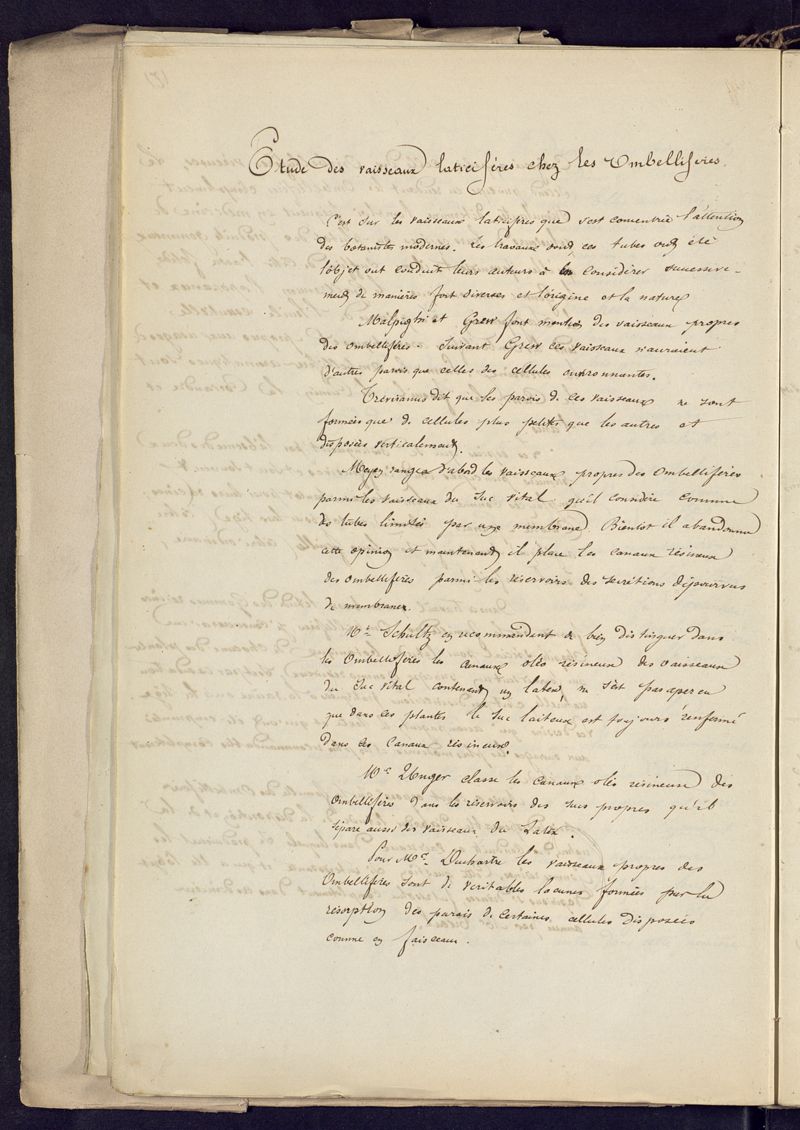 Etude des vaisseaux laticifères chez les Ombellifères
C'est sur les vaisseaux laticifères que s'est concentrée l'attention
des botanistes modernes. Les travaux dont ces tubes ont été
l'objet ont conduit leurs auteurs à en considérer successive-
ment de manières fort diverses et l'origine et la nature
Malpighi et Grew font mention des vaisseaux propres
des ombellifères. Suivant Grew ces vaisseaux n'auraient
d'autres parois que celles des cellules environnantes.
Tréviranus dit que les parois de ces vaisseaux ne sont
formées que de cellules plus petites que les autres et
disposées verticalement.
Meyen rangea d'abord les vaisseaux propres des Ombellifères
parmi les vaisseaux du suc vital qu'il considère comme
des tubes limités par une membrane Bientôt il abandonne
cette opinion et maintenant il place les canaux résineux
des ombellifères parmi les réservoirs des secrétions dépourvus
de membranes.
Mr. Schultz en recommandant de bien distinguer dans
les Ombellifères les canaux oléo résineux des vaisseaux
du suc vital contenant un latex, ne s'est pas aperçu
que dans ces plantes le suc laiteux est toujours renfermé
dans les canaux résineux.
Mr Unger classe les canaux oléo résineux des
ombellifères dans les réservoirs des sucs propres qu'il
sépare aussi des vaisseaux du Latex.
Pour Mr. Duchartre les vaisseaux propres des
Ombellifères sont de véritables lacunes formées par la
résorption des parois de certaines cellules disposées
comme en faisceau.